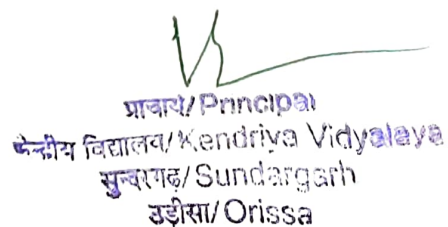 प्राचार्य/Principal
केन्द्रीय विद्यालय/Kendriya Vidyalaya
सुन्दरगढ़/Sundargarh
उड़ीसा/Orissa